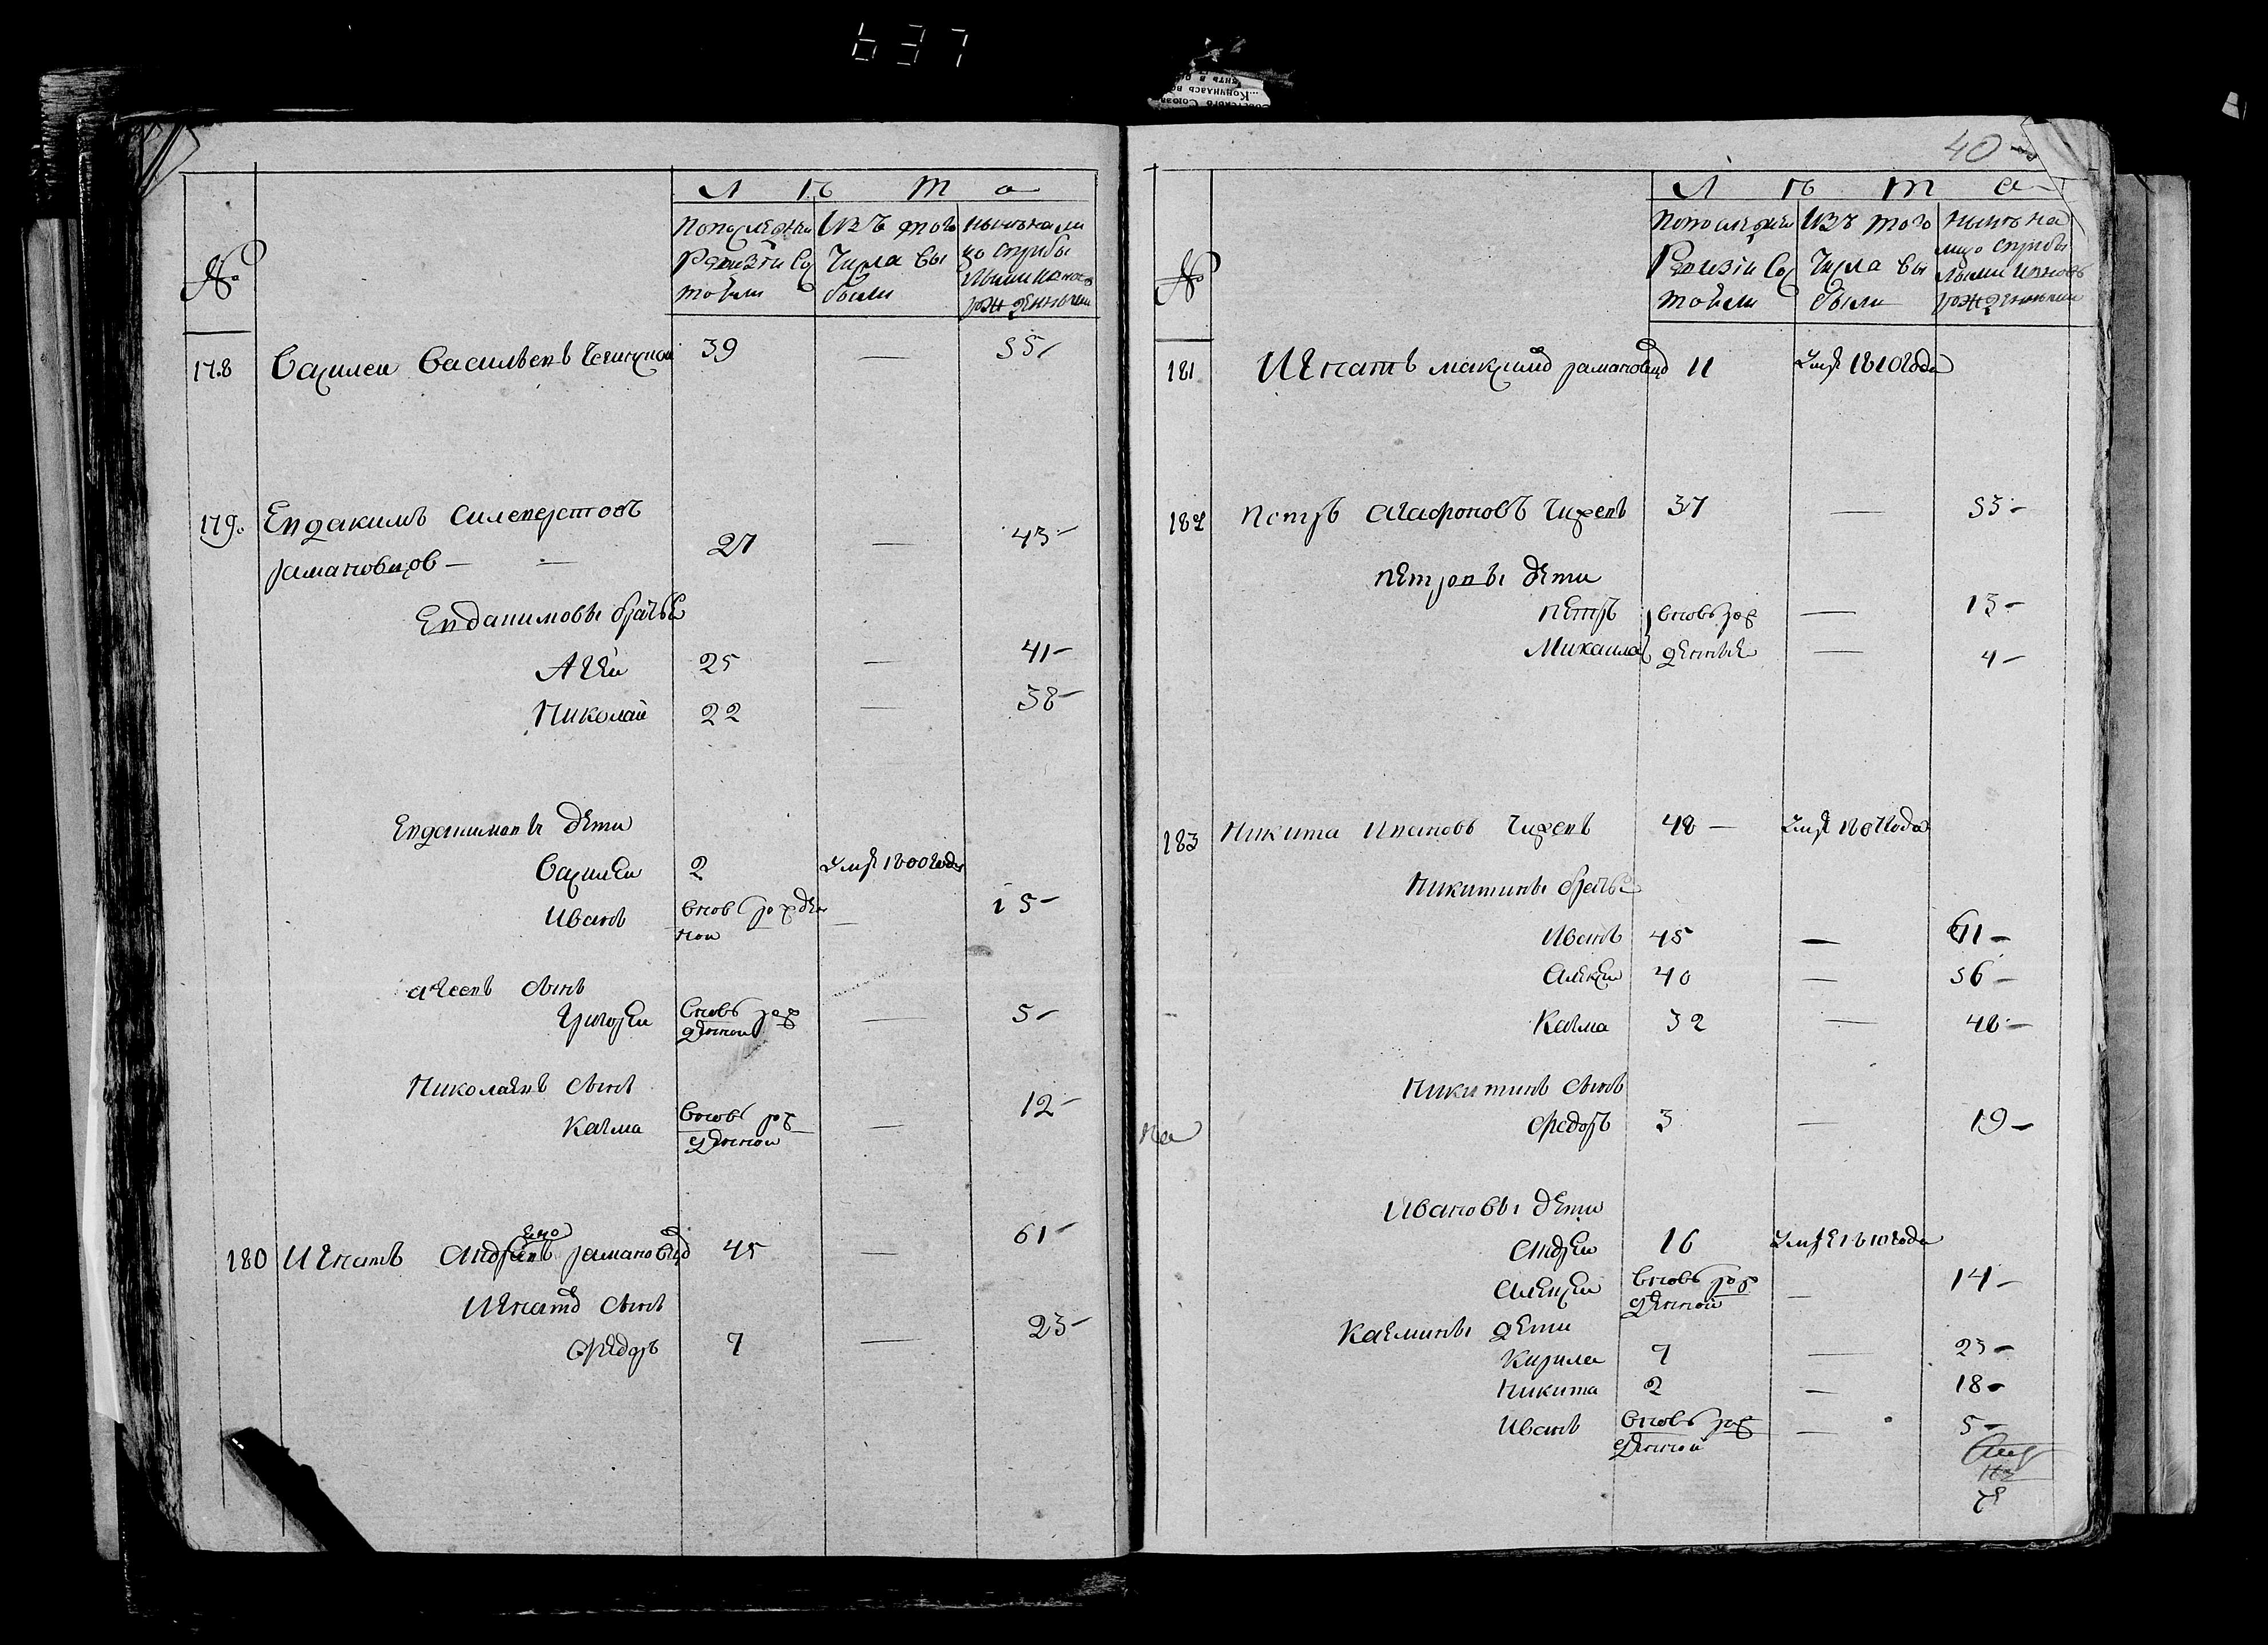 637
Л ѣ т а
№
По последней
Ревизіи Со
стояли
Изъ того
Числа вы
были
178 Василеи Васильевъ
39 — 55
179 Евдакимъ Силеверстовъ
рамановсков — — 27 — 43
Евдакимовы братья
Агеи 25 — 41
Николаи 22 — 38
Евдакимовы дети
Василеи 2 умре 1800 года
Иванъ вновь рожден
нои — 15
агеевъ сынъ
Григореи вновь рож
деннои — 5
Николаевъ сынъ
Казма вновь рож
деннои — 12
180 Игнатъ 45 — 61
Игнатов сынъ
Федоръ 7 — 23
40
Л ѣ т а
№
По последней
Ревизіи Со
стояли
Изъ того
Числа вы
были
нынѣ на
лицо
181 Игнатъ максимов 11 умре 1810 года
182 Петръ Агафоновъ Чижевъ 37 — 53
Петровы дети
Петръ вновь рож — 13
Михаила денные — 4
183 Никита Ивановъ Чижевъ 48 — умре 1807 года
Никитины братья
Иванъ 45 — 61
Алексеи 40 — 56
Казма 32 — 48
Никитинъ сынъ
Федоръ 3 — 19
Ивановы дети
Андреи 16 умре 1810 года
Алексеи вновь рож
деннои — 14
Казмины дети
Кирила 7 — 23
Никита 2 — 18
Иванъ вновь рож
деннои — 5